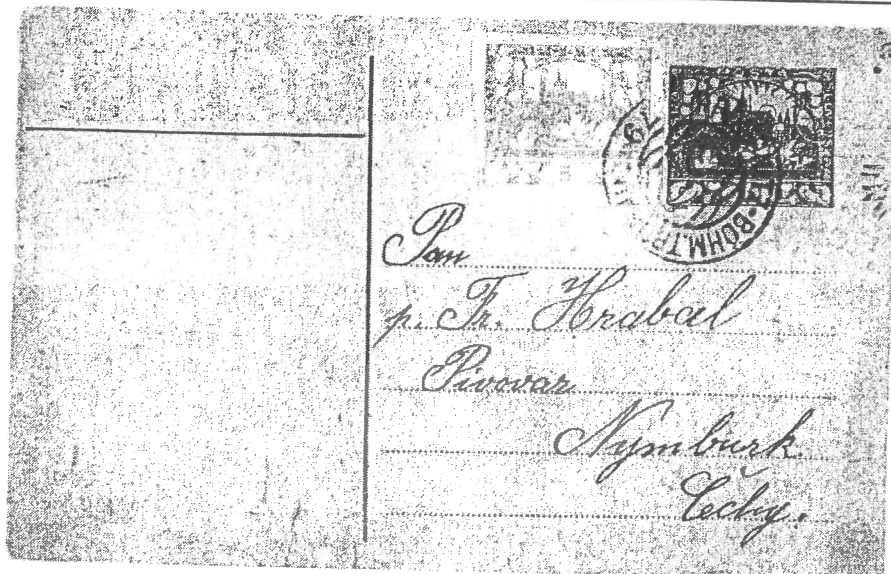 BÖHM.TR
Pan
p. Fr. Hrabal
Pivovar
Nymburk
Čechy.